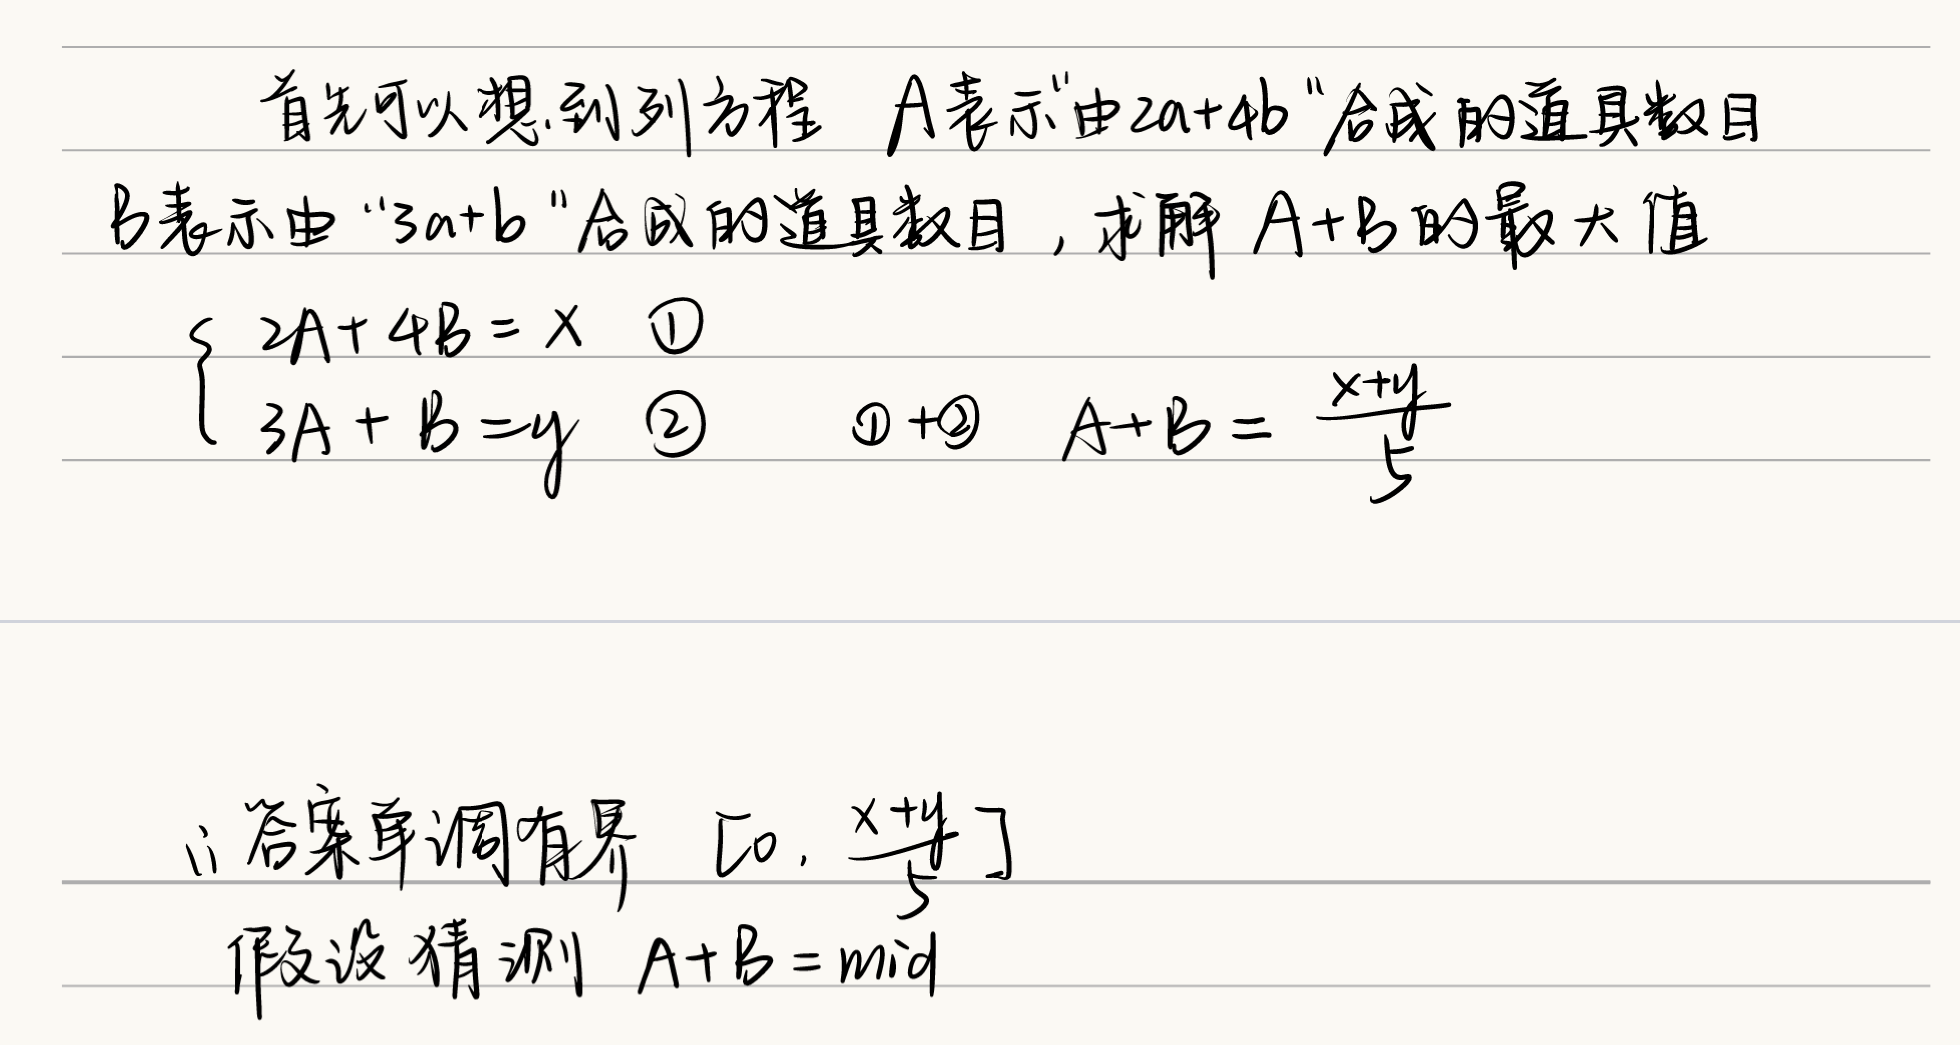 首先可以想到列方程 A表示“由2a+4b”合成的道具数目
B表示由“3a+b”合成的道具数目，求解 A+B的最大值
2A+4B=x ①
3A+B=y ② ①+② A+B=\frac{x+y}{5}
∴答案单调有界 [0, \frac{x+y}{5}]
假设猜测 A+B=mid